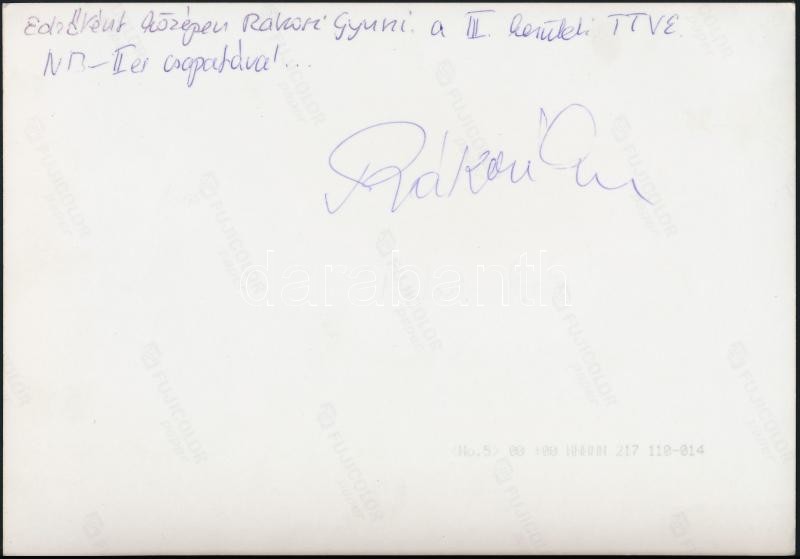 Edzőként középen Rákosi Gyuszi. a III. kerületi TTVE.
NB-II es csapatával...
Rákosi
darabanth
FUJICOLOR
paper
<No.5> 00 +00 NNNNN 217 110-014